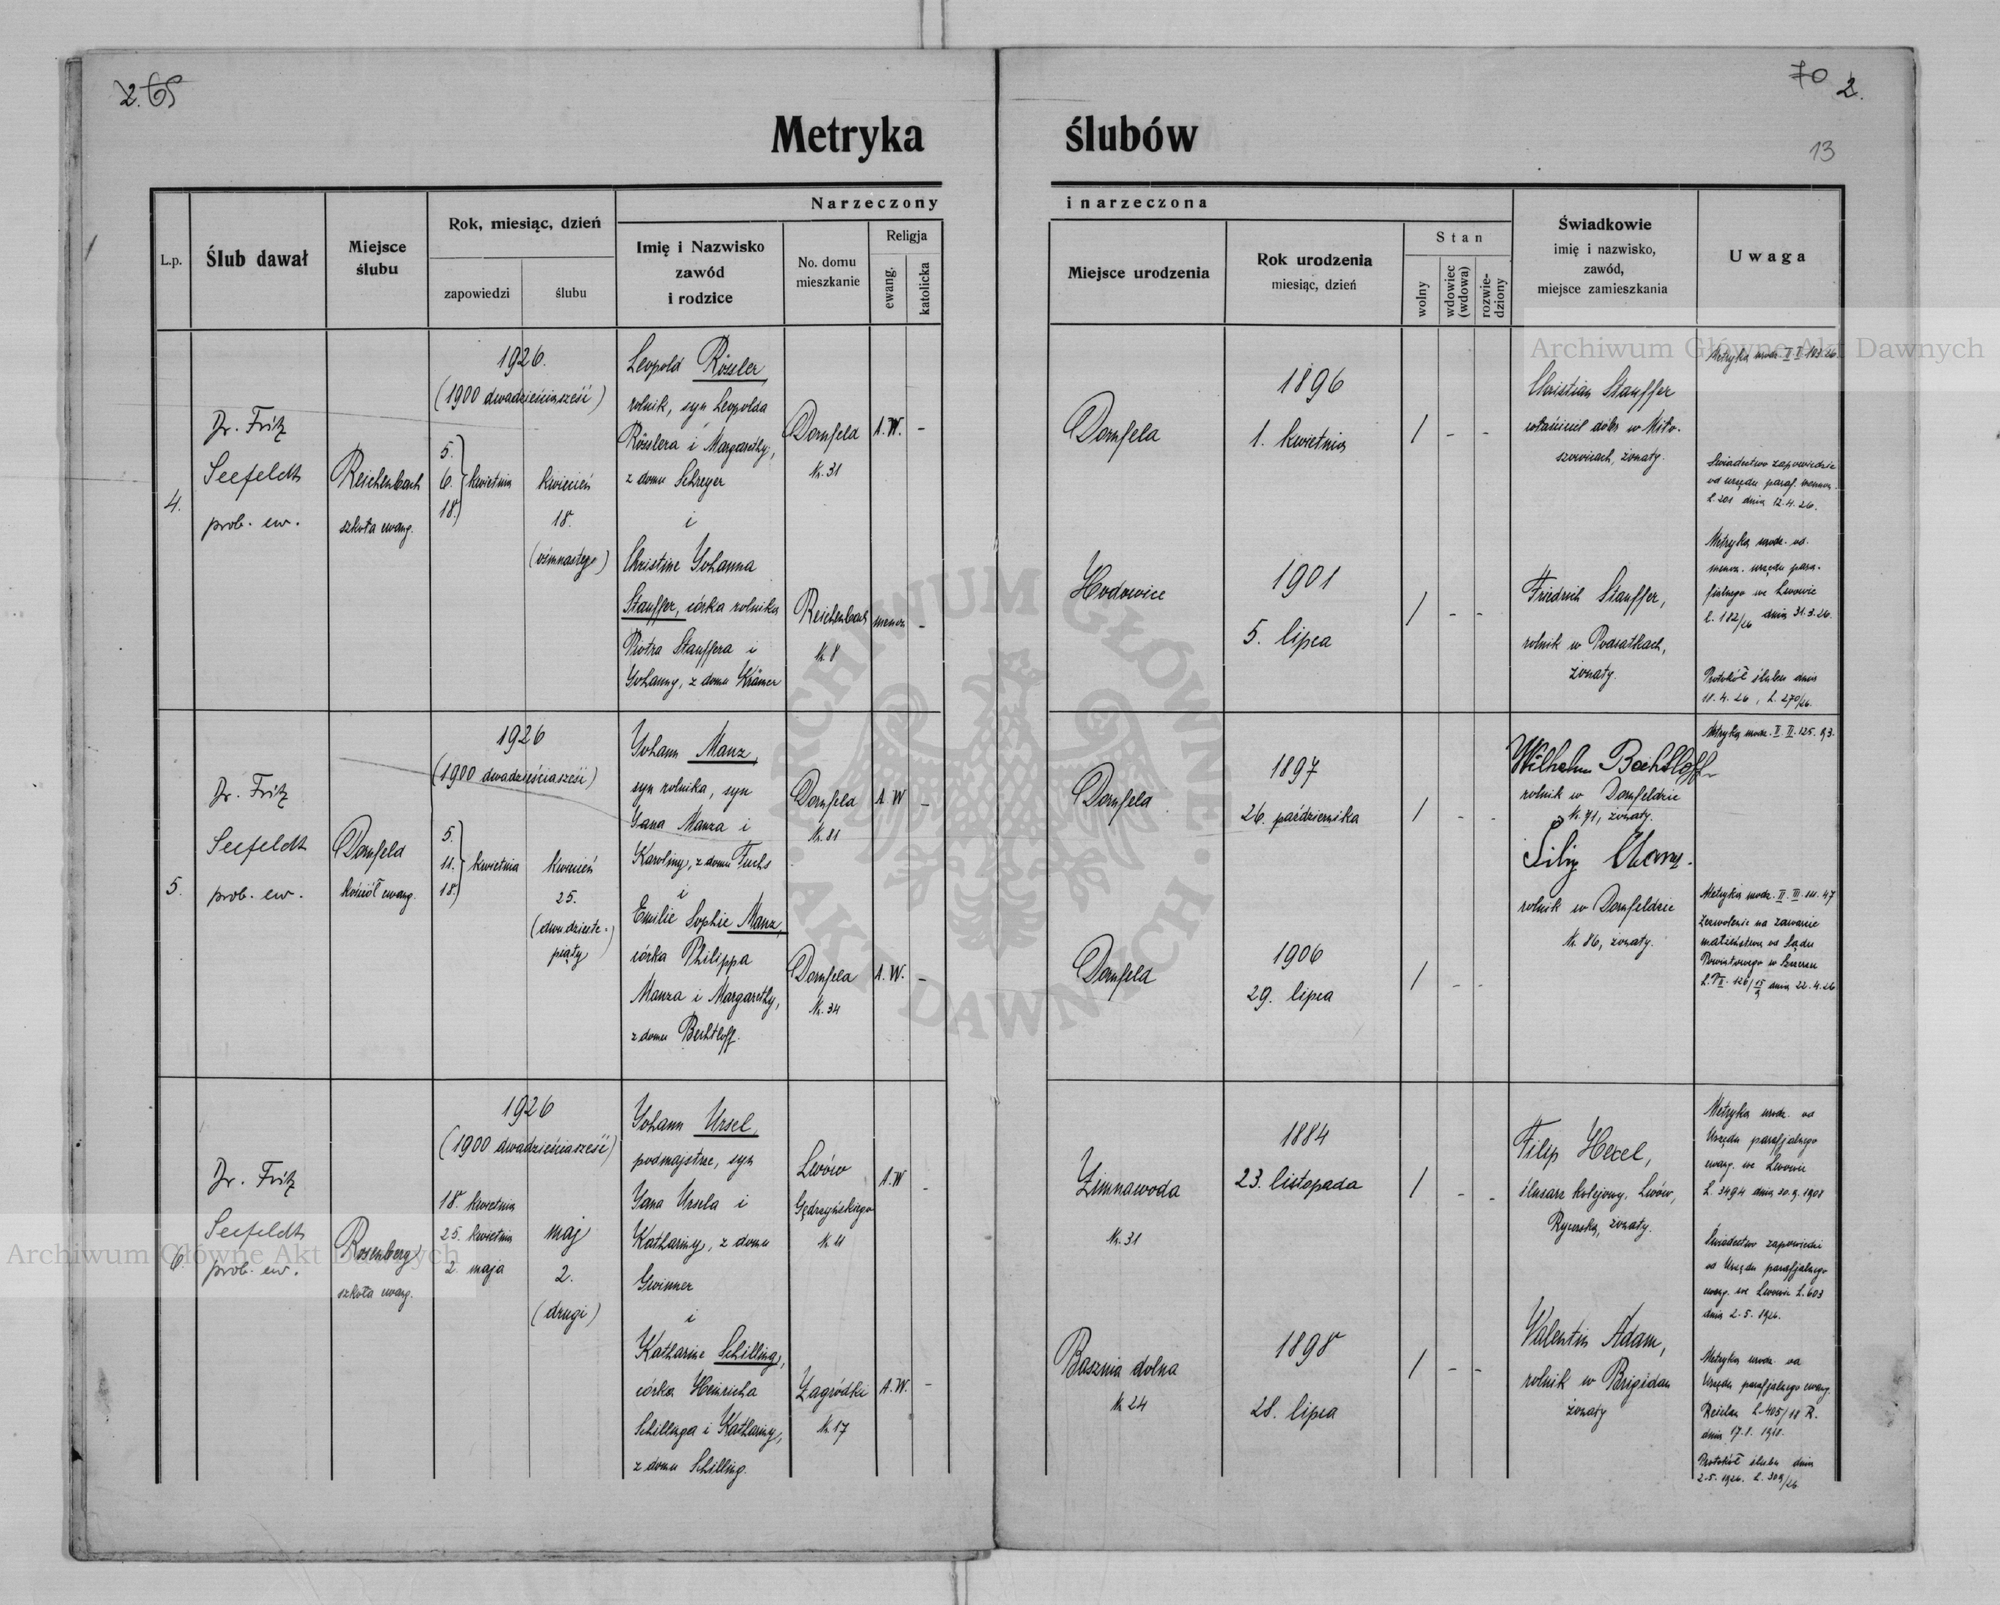 2. 69
70 2.
13
Metryka ślubów
L.p.
Ślub dawał
Miejsce
ślubu
Rok, miesiąc, dzień
zapowiedzi
ślubu
Narzeczony i narzeczona
Imię i Nazwisko
zawód
i rodzice
No. domu
mieszkanie
Religja
ewang.
katolicka
Miejsce urodzenia
Rok urodzenia
miesiąc, dzień
Stan
wolny
wdowiec
(wdowa)
rozwie-
dziony
Świadkowie
imię i nazwisko,
zawód,
miejsce zamieszkania
Uwaga
4.
Dr. Fritz
Seefeldt
prob. ew.
Reichenbach
szkoła ewang.
1926.
(1900 dwadzieściasześć)
5.
6. } kwietnia
18.
kwiecień
18.
(ósmnastego)
Leopold Rössler,
rolnik, syn Leopolda
Rösslera i Margarethy,
z domu Schreyer
i
Christine Johanna
Stauffer, córka rolnika
Piotra Stauffera i
Johanny, z domu Krämer
Dornfeld
Nr. 31
A.W.
-
Reichenbach
Nr. 8
menon.
-
Dornfeld
1896
1. kwietnia
/ - -
Hodowice
1901
5. lipca
/ - -
Christian Stauffer
właściciel dóbr w Miło-
szowicach, żonaty.
Friedrich Stauffer,
rolnik w Podsadkach,
żonaty.
Metryka urodz.
Świadectwo zapowiedzie
od urzędu paraf. menon.
L. 201 dnia 12.4.26.
Metryka urodz. od
menon. urzędu para-
fialnego we Lwowie
L. 182/26 dnia 31.3.26.
Protokół ślubu dnia
18.4.26, L. 270/26.
5.
Dr. Fritz
Seefeldt
prob. ew.
Dornfeld
kościół ewang.
1926
(1900 dwadzieściasześć)
5.
11. } kwietnia
18.
kwiecień
25.
(dwudziesto-
piąty)
Johann Manz,
syn rolnika, syn
Jana Manza i
Karoliny, z domu Fuchs
i
Emilie Sophie Manz,
córka Philippa
Manza i Margarethy,
z domu Bechtloff.
Dornfeld
Nr. 81
A.W
-
Dornfeld
Nr. 34
A.W.
-
Dornfeld
1897
26. października
/ - -
Dornfeld
1906
29. lipca
/ - -
Wilhelm Bechtloff
rolnik w Dornfeldzie
Nr. 71, żonaty.
Filip Manz.
rolnik w Dornfeldzie
Nr. 86, żonaty.
Metryka urodz. I. II. 125. 93.
Metryka urodz. II. III. 47
Zezwolenie na zawarcie
małżeństwa od Sądu
Powiatowego w Szczercu
dnia 22.4.26
6.
Dr. Fritz
Seefeldt
prob. ew.
Rosenberg
szkoła ewang.
1926
(1900 dwadzieściasześć)
18. kwietnia
25. kwietnia
2. maja
maj
2.
(drugi)
Johann Ursel,
podmajstrze, syn
Jana Ursela i
Kathariny, z domu
Gwinner
i
Katharine Schilling,
córka Heinricha
Schillinga i Kathariny,
z domu Schilling.
Lwów
Nr. 11
A.W
-
Zagródki
Nr. 17
A.W.
-
Zimnawoda
Nr. 31
1884
23. listopada
/ - -
Basznia dolna
Nr. 24
1898
28. lipca
/ - -
Filip Hexel,
ślusarz kolejowy, Lwów,
Rycerska, żonaty.
Valentin Adam,
rolnik w Brigidau
żonaty
Metryka urodz. od
Urzędu parafjalnego
ewang. we Lwowie
L. 3494 dnia 30.9.1908
Świadectwo zapowiedzi
od Urzędu parafjalnego
ewang. we Lwowie L. 603
dnia 2.5.1926.
Metryka urodz. od
Urzędu parafjalnego ewang.
Reichau L. 405/18 R.
dnia 17.8.1918.
Protokół ślubu dnia
2.5.1926. L. 309/26
Archiwum Główne Akt Dawnych
Archiwum Główne Akt Dawnych
ARCHIWUM GŁÓWNE AKT DAWNYCH